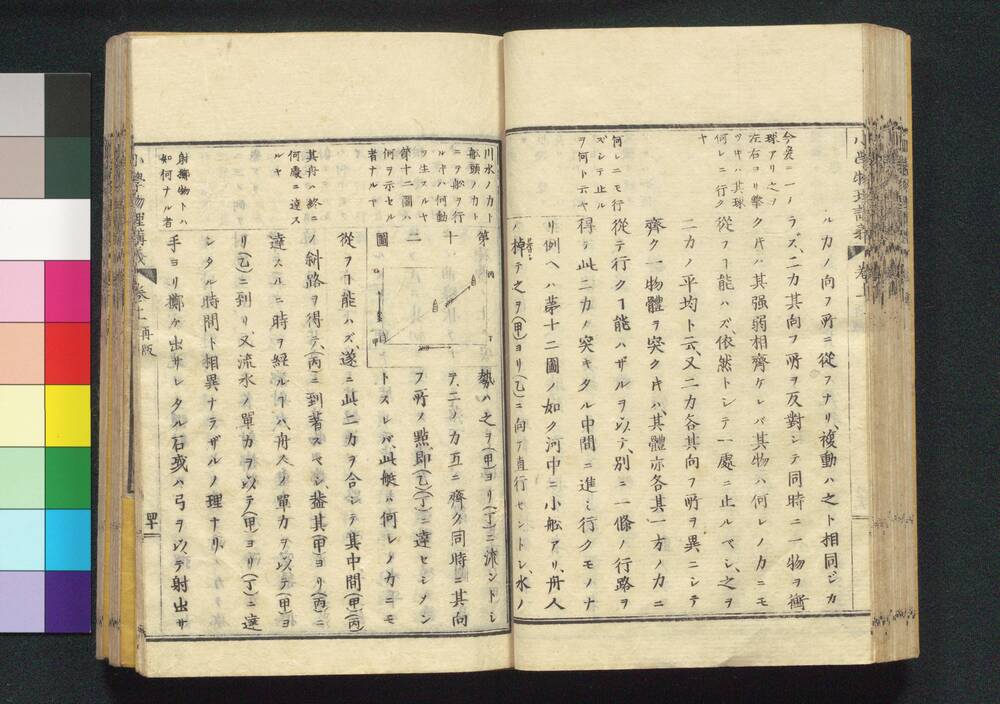 ル力ノ向フ所ニ從フナリ、複動ハ之ト相同ジカ
ラズ、二力其向フ所ヲ反對シテ同時ニ一物ヲ衝
ク片ハ其强弱相齊ケレバ其物ハ何レノ力ニモ
從フヿ能ハズ、依然トシテ一處ニ止ルベシ、之ヲ
二力ノ平均ト云、又二力各其向フ所ヲ異ニシテ
齊ク一物體ヲ突ク片ハ其體亦各其一方ノ力ニ
從テ行クヿ能ハザルヲ以テ、別ニ一條ノ行路ヲ
得テ此二力ノ突キタル中間ニ進ミ行クモノナ
リ例ヘハ第十二圖ノ如ク河中ニ小舩アリ、舟人
棹テ之ヲ(甲)ヨリ(乙)ニ向テ直行セントシ、水ノ
今爰ニ一ノ
球アリ之ヲ
左右ヨリ擊
ツ片ハ其球
何レニ行ク
ヤ
何レニモ行
ズシテ止ル
ヲ何ト云ヤ
小學物理講義
卷ノ上
勢ハ之ヲ(甲)ヨリ(丁)ニ流ントシ
テ、二ノ力互ニ齊ク同時ニ其向
フ所ノ點、即(乙)(丁)ニ達セシメン
トスレバ、此艇ハ何レノ力ニモ
第
十
二
圖
丙
丁
乙
甲
從フヿ能ハズ、遂ニ此二力ヲ合シテ其中間(甲)(丙)
ノ斜路ヲ得テ、(丙)ニ到著スベシ、蓋其(甲)ヨリ(丙)ニ
達スルニ時ヲ經ルヿハ舟人ノ單力ヲ以テ(甲)ヨ
リ(乙)ニ到リ、又流水ノ單力ヲ以テ(甲)ヨリ(丁)ニ達
シタル時間ト相異ナラザルノ理ナリ
手ヨリ擲ケ出サレタル石或ハ弓ヲ以テ射出サ
川水ノ力ト
船頭ノ力ト
ニテ船ヲ行
ル片ハ何動
ヲ生スルヤ
第十二圖ハ
何ヲ示セル
者ナルヤ
其舟ハ終ニ
何處ニ達ス
ルヤ
射擲物トハ
如何ナル者
小學物理講義
卷ノ上
再版